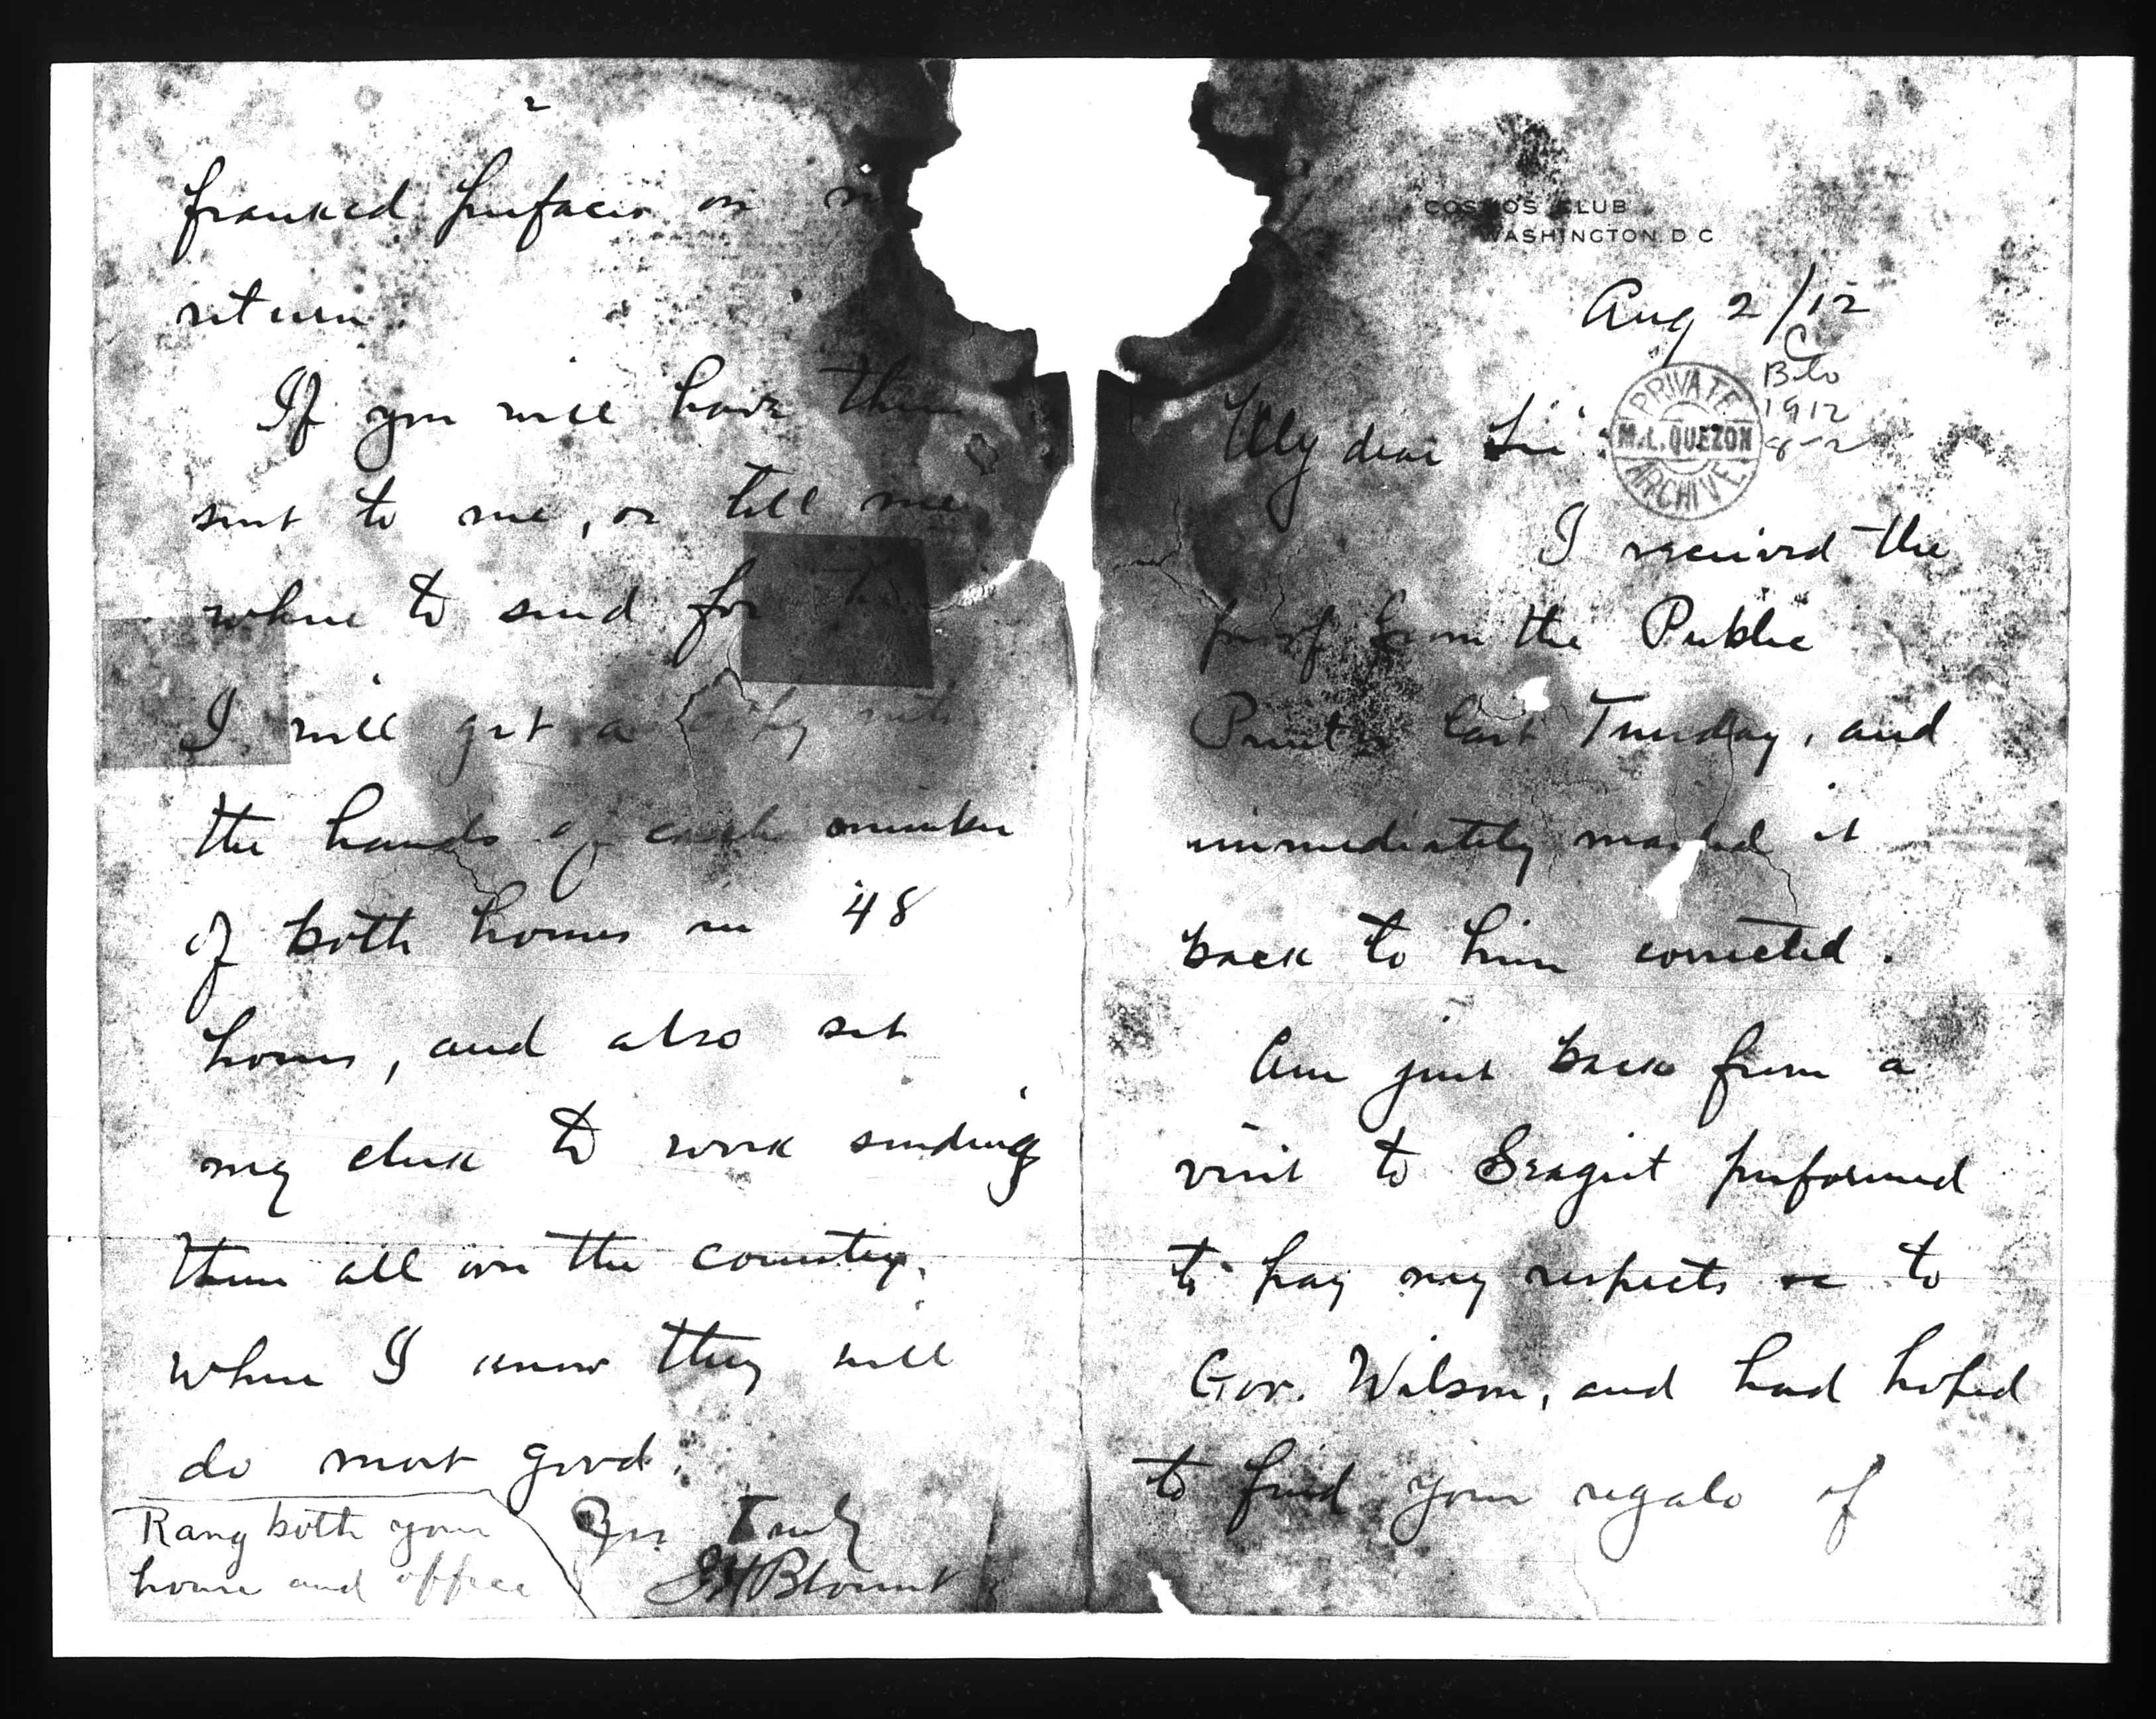 COSMOS CLUB
WASHINGTON D C
Aug 2/12
C
Blo
1912
8-2
PRIVATE
M.L. QUEZON
ARCHIVE
My dear Sir:
I received the
proof from the Public
Printer last Tuesday, and
immediately mailed it
back to him corrected.
Am just back from a
visit to Seagirt performed
to pay my respects to
Gov. Wilson, and had hoped
to find your regalo of
2
franked prefaces on
return.
If you will have them
sent to me, or tell me
where to send for them
I will get a copy into
the hands of each member
of both houses in 48
hours, and also set
my clerk to work sending
them all over the country,
where I know they will
do most good.
Yrs Truly
JH Blount
Rang both your
house and office